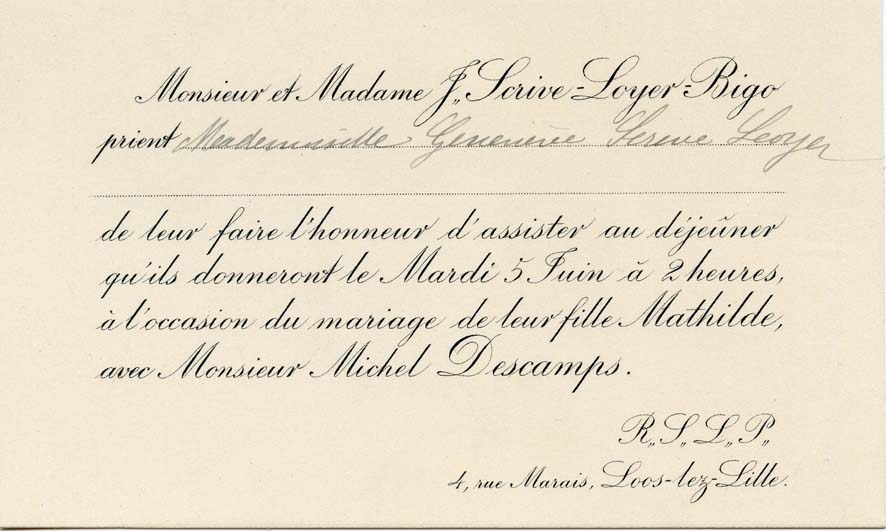 Monsieur et Madame J„ Scrive-Loyer-Bigo
prient Mademoiselle Geneviève Scrive Loyer
de leur faire l'honneur d'assister au déjeûner
qu'ils donneront le Mardi 5 Juin à 2 heures,
à l'occasion du mariage de leur fille Mathilde,
avec Monsieur Michel Descamps.
R„ S„ L„ P„
4, rue Marais, Loos-lez-Lille.